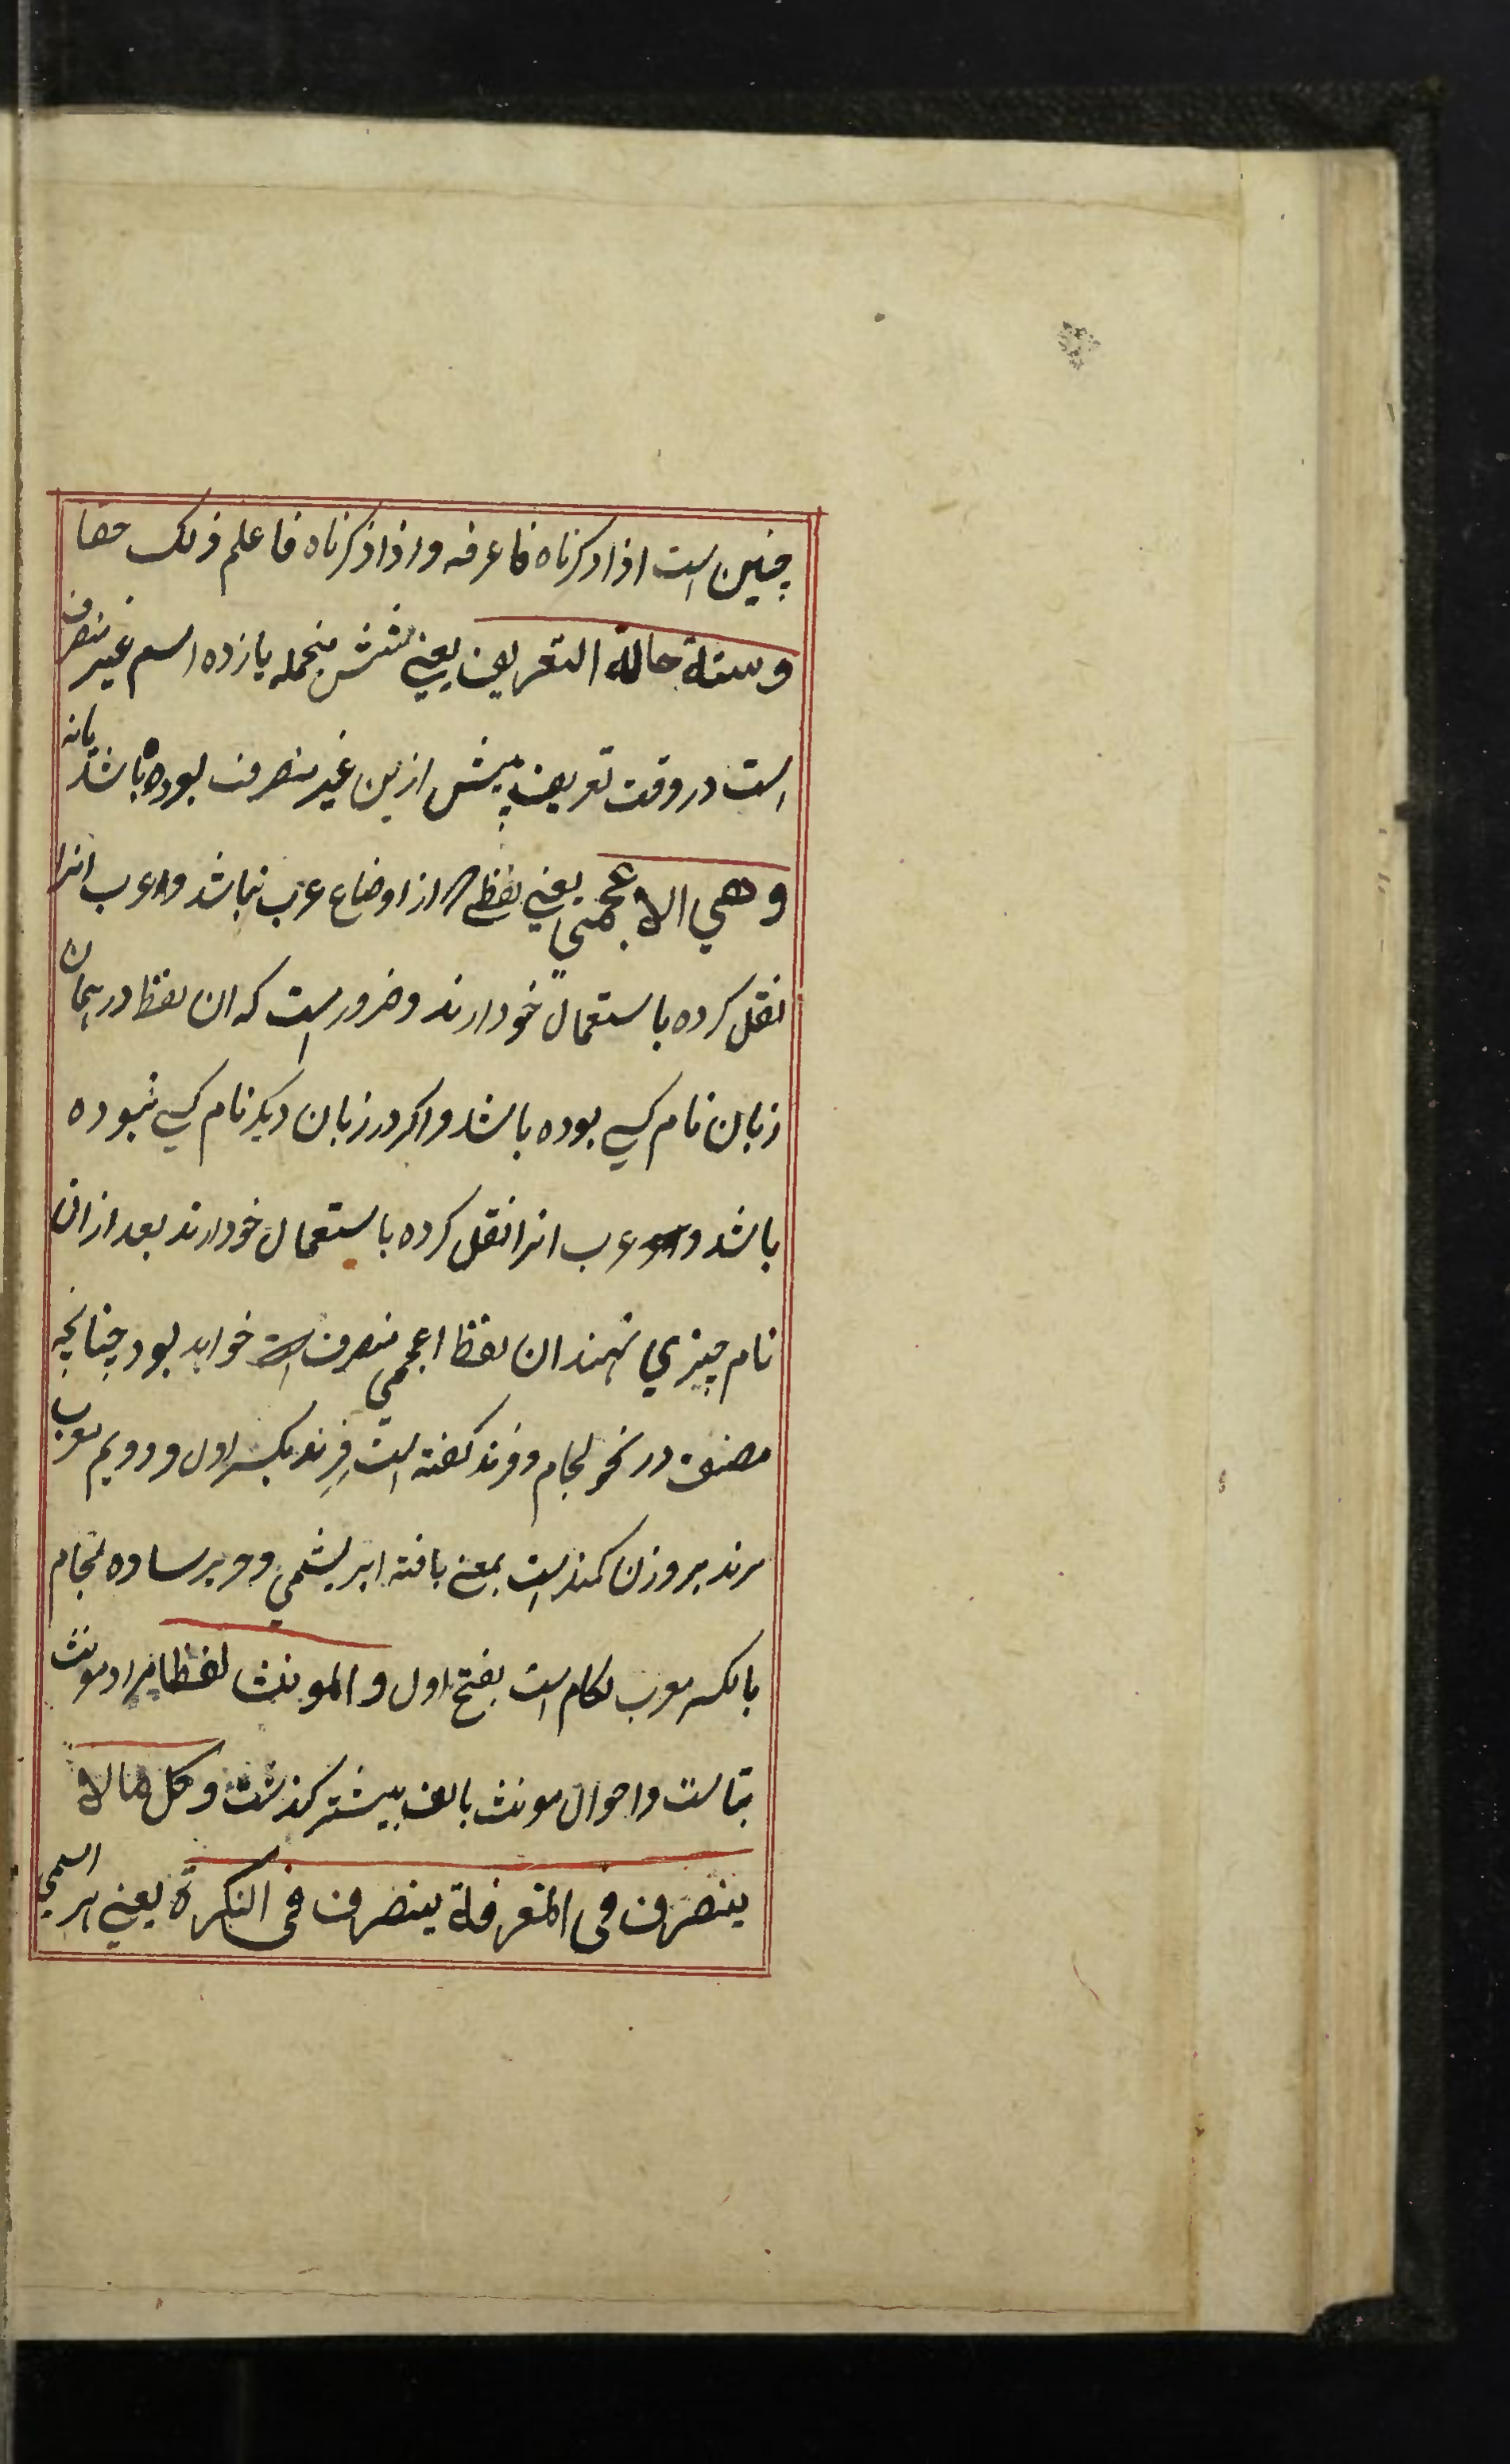 چنین است اذا ذکرناه فاعرفه و اذا ذکرناه فاعلم ذلک حقا
وستة حالة التعریف یعنی شش منجمله یازده اسم غیر منصرف
است در وقت تعریف پیش ازین غیر منصرف بوده باشد یا نه
وهي الاعجمي یعنی لفظ از اوضاع عرب نباشد و عرب انرا
نقل کرده باستعمال خود ارند و ضرور است که ان لفظ در همان
زبان نام کسی بوده باشد و اکر در زبان دیکر نام کسی نبوده
باشد و عرب انرا نقل کرده باستعمال خود ارند بعد ازان
نام چیزي نهند ان لفظ اعجمي منصرف خواهد بود چنانچه
مصنف در نحو لجام و فرند کفته است فِرِند بکسر اول و دویم معرب
پرند بر وزن کمند است بمعنی بافته ابریشمي و حریر ساده لجام
بالکسر معرب لکام است بفتح اول والمونث لفظا مراد مونث
بتاست و احوال مونث بالف بیشتر کذشت وکل مالا
ینصرف فی المعرفة ینصرف فی النکرة یعنی هر اسمي